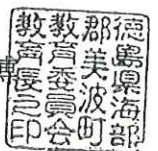 徳島県海部
郡美波町
教育委員会
教育長之印